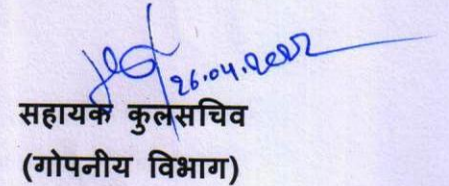 26.04.2022
सहायक कुलसचिव
(गोपनीय विभाग)